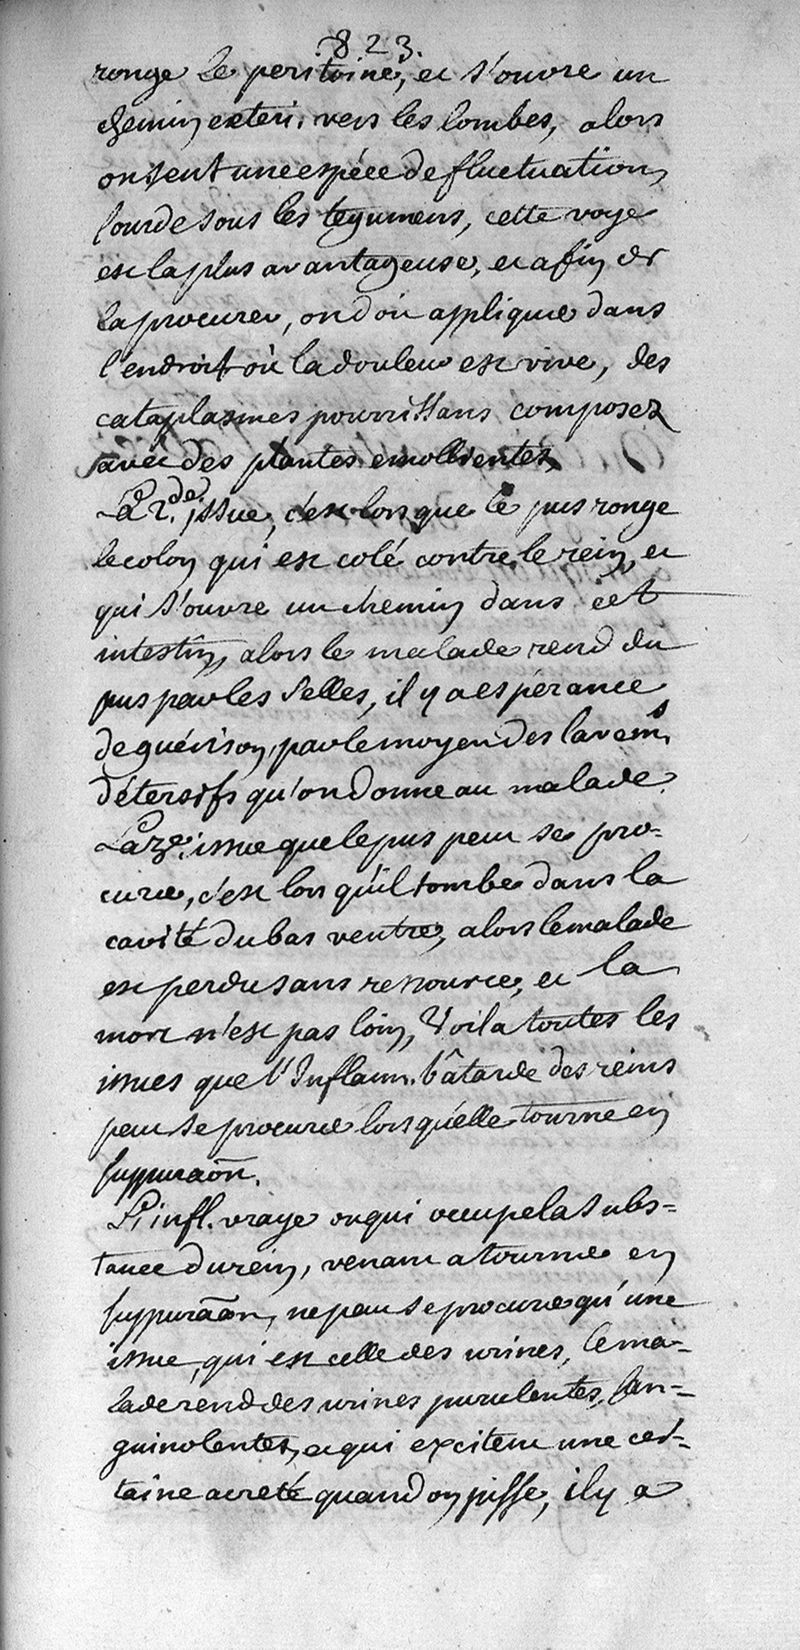 .823.
ronge le peritoine, et s'ouvre un
chemin exteri. vers les lombes, alors
on sent une espéce de fluctuation
lourde sous les tegumens, cette voye
est la plus avantageuse, et afin de
la procurer, on doit applique dans
l'endroit où la douleur est vive, des
cataplasmes pourrissans composez
avec des plantes emollientes,
La 2.de issue, c'est lors que le pus ronge
le colon qui est colé contre le rein, et
qui s'ouvre un chemin dans cet
intestin, alors le malade rend du
pus par les selles, il y a espérance
de guérison, par le moyen des lavemens
détersifs qu'on donne au malade.
La 3e. issue que le pus peut se pro-
curer, c'est lors qu'il tombe dans la
cavité du bas ventre, alors le malade
est perdu sans ressource, et la
mort n'est pas loin, Voila toutes les
issues que l'Inflamm. bâtarde des reins
peut se procurer lors qu'elle tourne en
suppuraōn.
L'infl. vraye ou qui occupe la subs=
tance du rein, venant a tourner en
suppuraōn, ne peut se procurer qu'une
issue, qui est celle des urines, le ma-
lade rend des urines purulentes, san=
guinolentes, et qui excitent une cer-
taine acreté quand on pisse, il y a